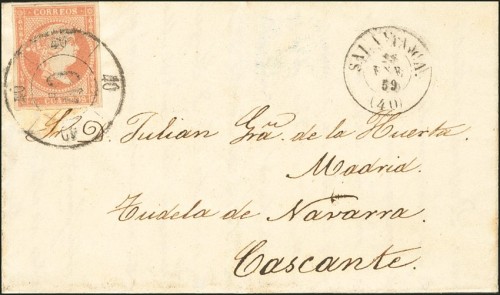 CORREOS
40
40
40
40
SALAMANCA.
ENE.
59
(40)
Sr. Julian Gra. de la Huerta
Madrid.
Tudela de Navarra.
Cascante.